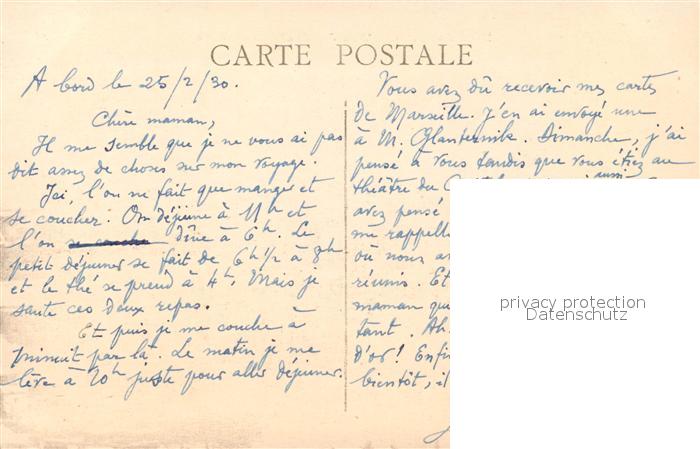 CARTE POSTALE
A bord le 25/2/30.
Chère maman,
Il me semble que je ne vous ai pas
dit assez de choses sur mon voyage.
Ici, l'on ne fait que manger et
se coucher. On déjeune à 11h et
l'on se couche dîne à 6h. Le
petit déjeuner se fait de 6h1/2 à 8h
et le thé se prend à 4h. Mais je
saute ces deux repas.
Et puis je me couche à
minuit par là. Le matin je me
lève à 10h juste pour aller déjeuner.
Vous avez dû recevoir mes cartes
de Marseille. J'en ai envoyé une
à M. Glanternik. Dimanche, j'ai
pensé à vous tandis que vous étiez au
théâtre du
aussi
avez pensé
me rappelle
où nous
réunis. Et
maman qui
tant. Ah
d'or! Enfin
bientôt,
privacy protection
Datenschutz